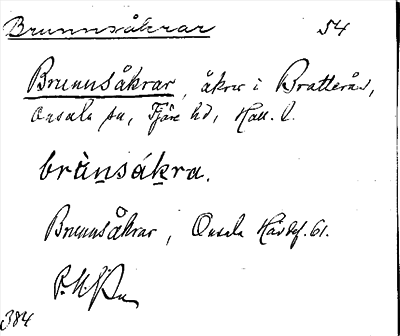 Brunnsåkrar 54
Brunnsåkrar, åkrar i Bratterås,
Onsala sn, Fjäre hd, Hall. l.
brùnsákra.
Brunnsåkrar, Onsala Häradsk. 61.
384